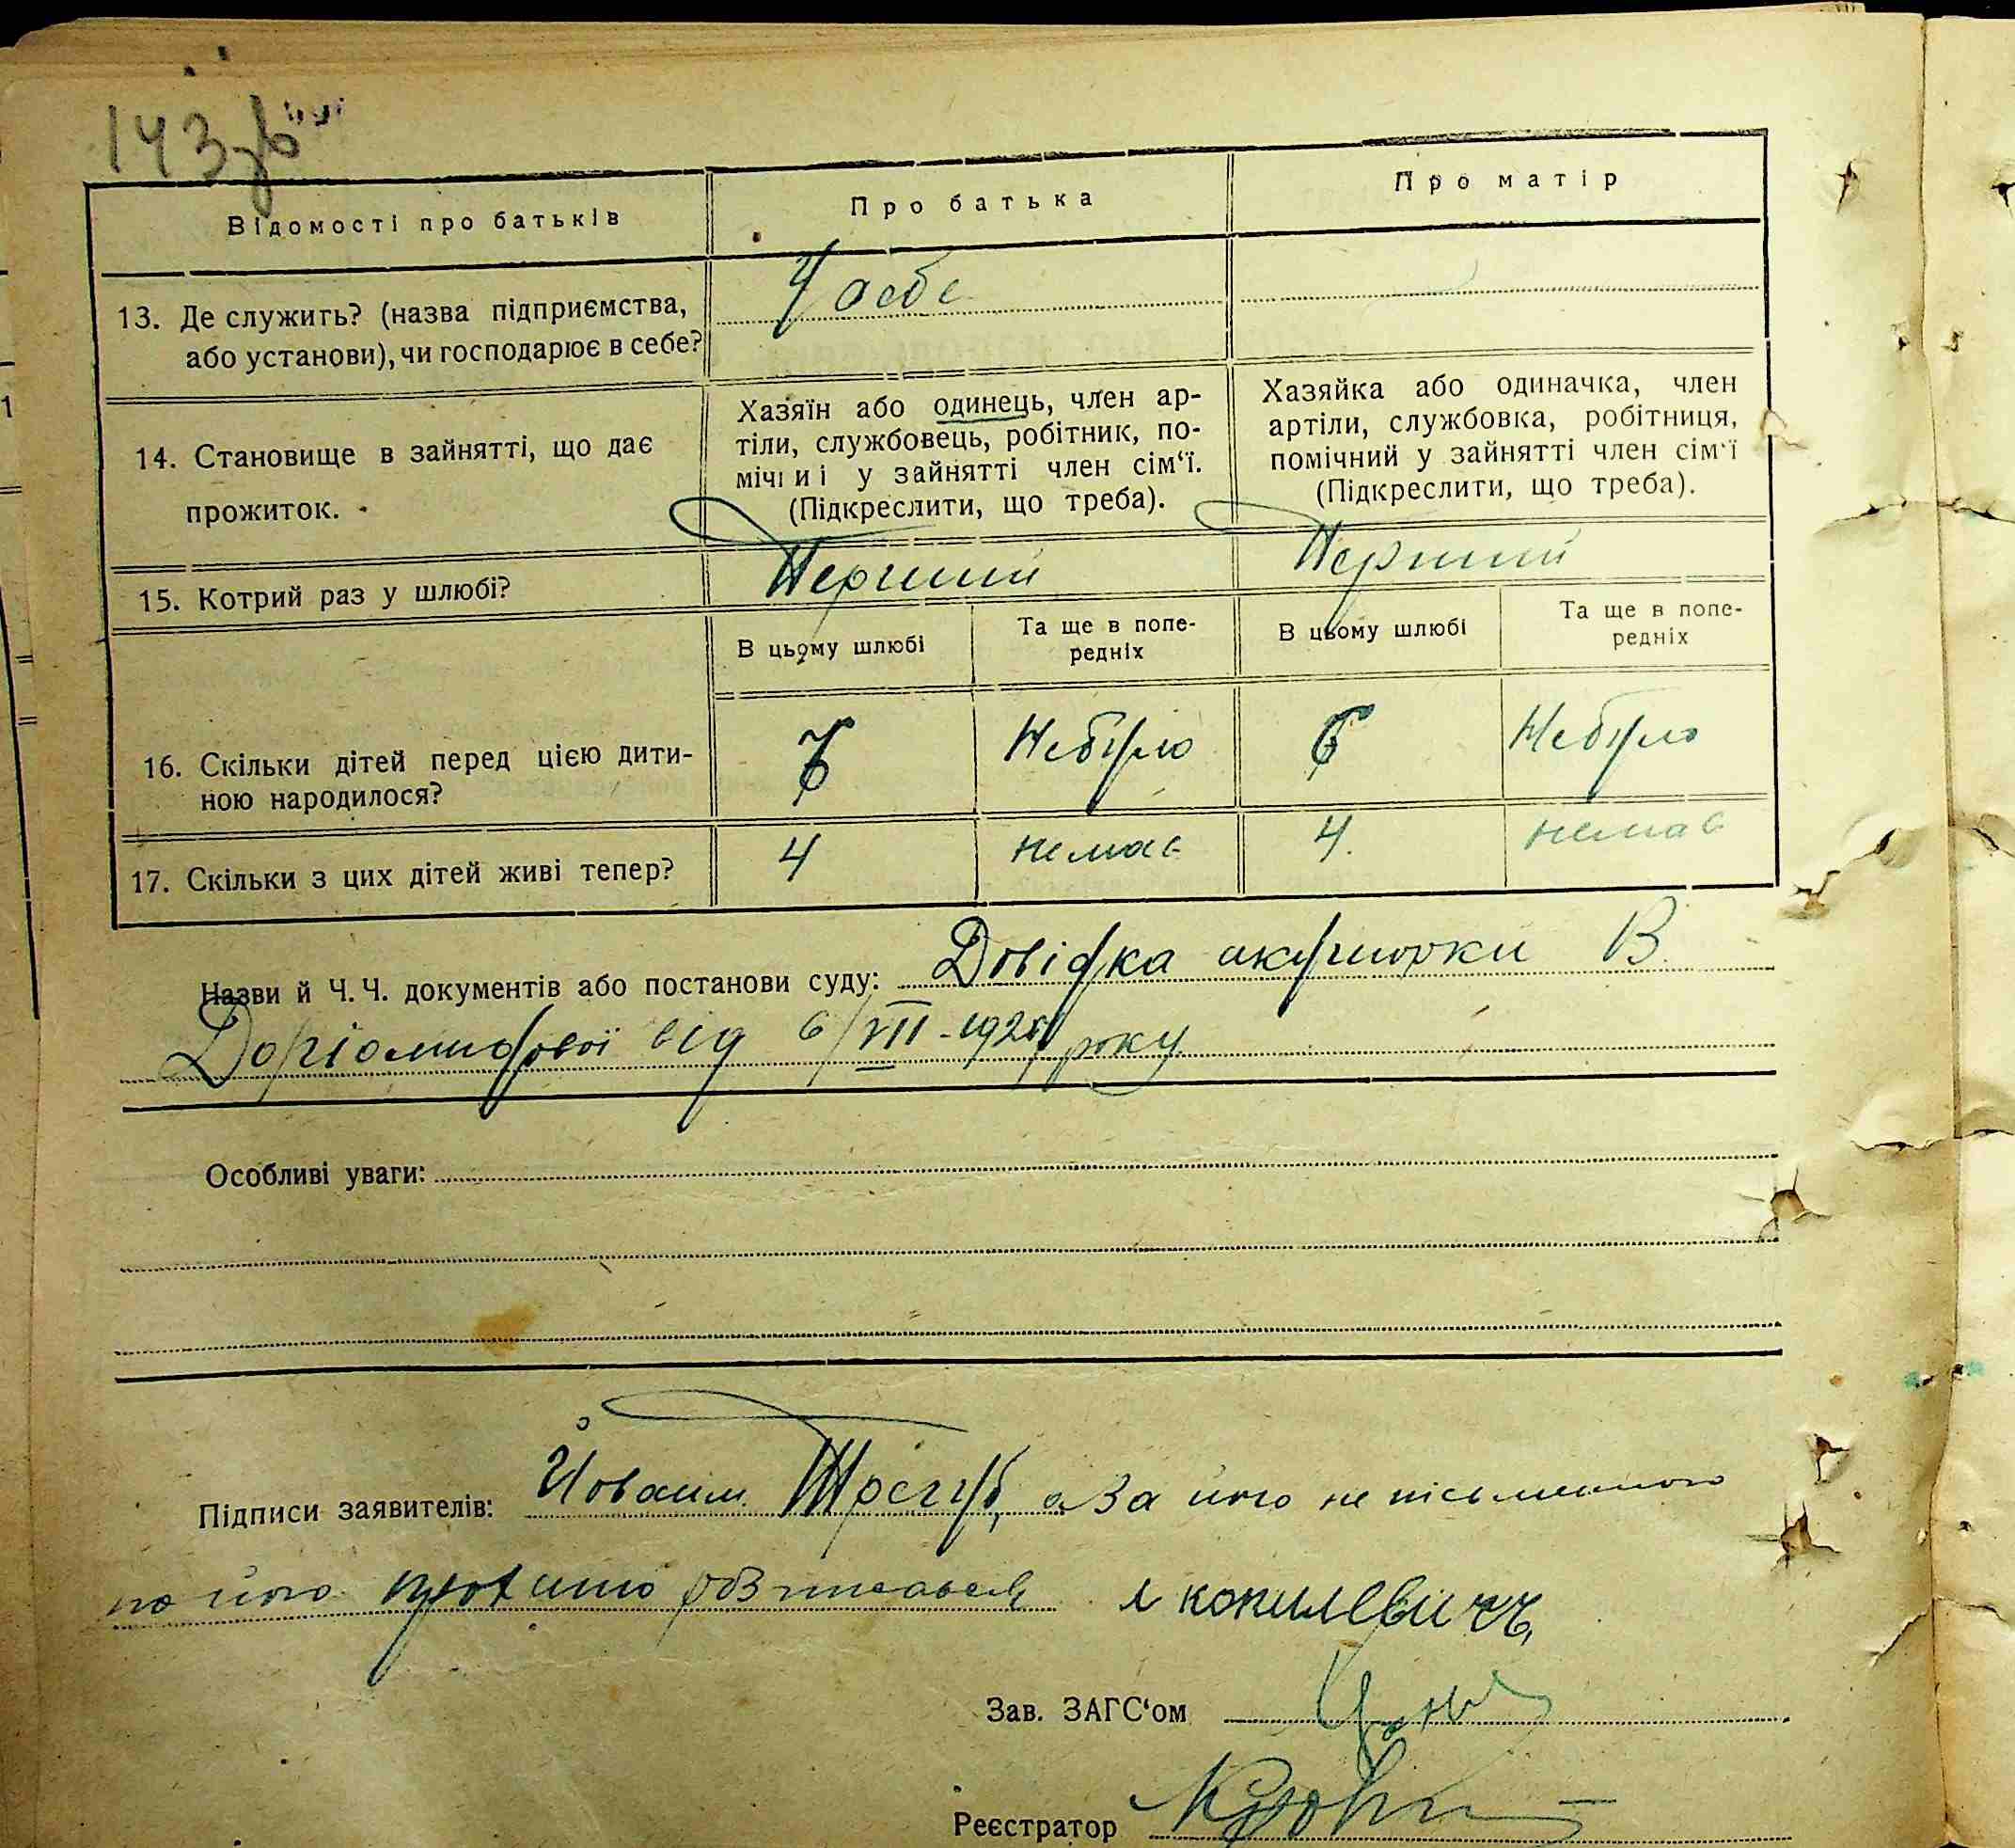 143 зв
Відомості про батьків
Про батька
Про матір
13. Де служить? (назва підприємства,
або установи), чи господарює в себе?
У себе
14. Становище в зайнятті, що дає
прожиток.
Хазяїн або одинець, член ар-
тіли, службовець, робітник, по-
мічний у зайнятті член сім‘ї.
(Підкреслити, що треба).
Хазяйка або одиначка, член
артіли, службовка, робітниця,
помічний у зайнятті член сім‘ї
(Підкреслити, що треба).
15. Котрий раз у шлюбі?
Перший
Перший
В цьому шлюбі
Та ще в попе-
редніх
В цьому шлюбі
Та ще в попе-
редніх
16. Скільки дітей перед цією дити-
ною народилося?
Небуло
6
Небуло
17. Скільки з цих дітей живі тепер?
4
немає
4.
немає
Назви й Ч. Ч. документів або постанови суду: Довідка акушорки В.
від 6/VII-192 року
Особливі уваги:
Підписи заявителів: Йоваким Трегуб, а за його не письменного
по його проханю розписався
Зав. ЗАГС‘ом
Реєстратор